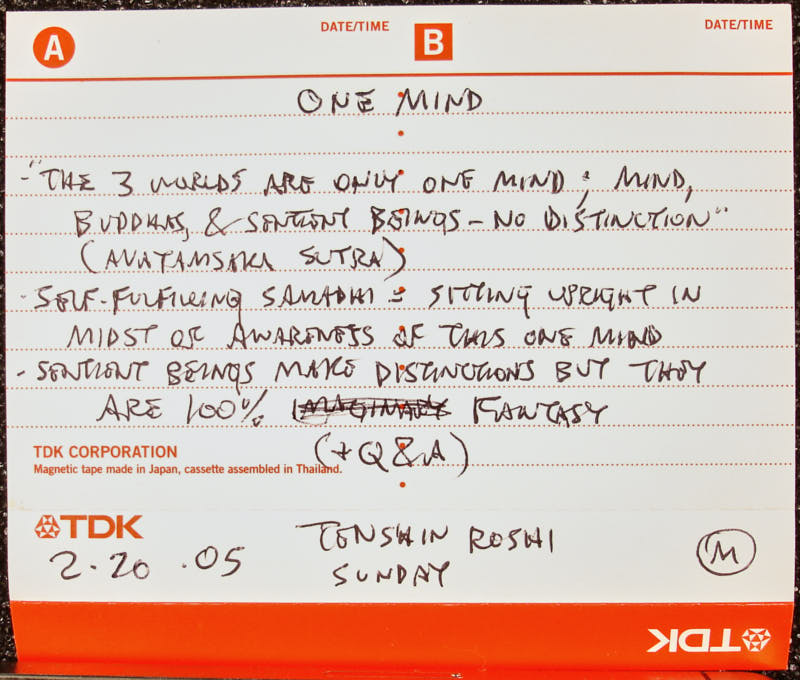 A DATE/TIME B DATE/TIME
ONE MIND
- "THE 3 WORLDS ARE ONLY ONE MIND; MIND,
BUDDHAS, & SENTIENT BEINGS - NO DISTINCTION"
(AVATAMSAKA SUTRA)
- SELF-FULFILLING SAMADHI = SITTING UPRIGHT IN
MIDST OF AWARENESS OF THIS ONE MIND
- SENTIENT BEINGS MAKE DISTINCTIONS BUT THEY
ARE 100% IMAGINARY FANTASY
(+Q&A)
TDK CORPORATION
Magnetic tape made in Japan, cassette assembled in Thailand.
TDK
2.20.05 TENSHIN ROSHI
SUNDAY
M
TDK